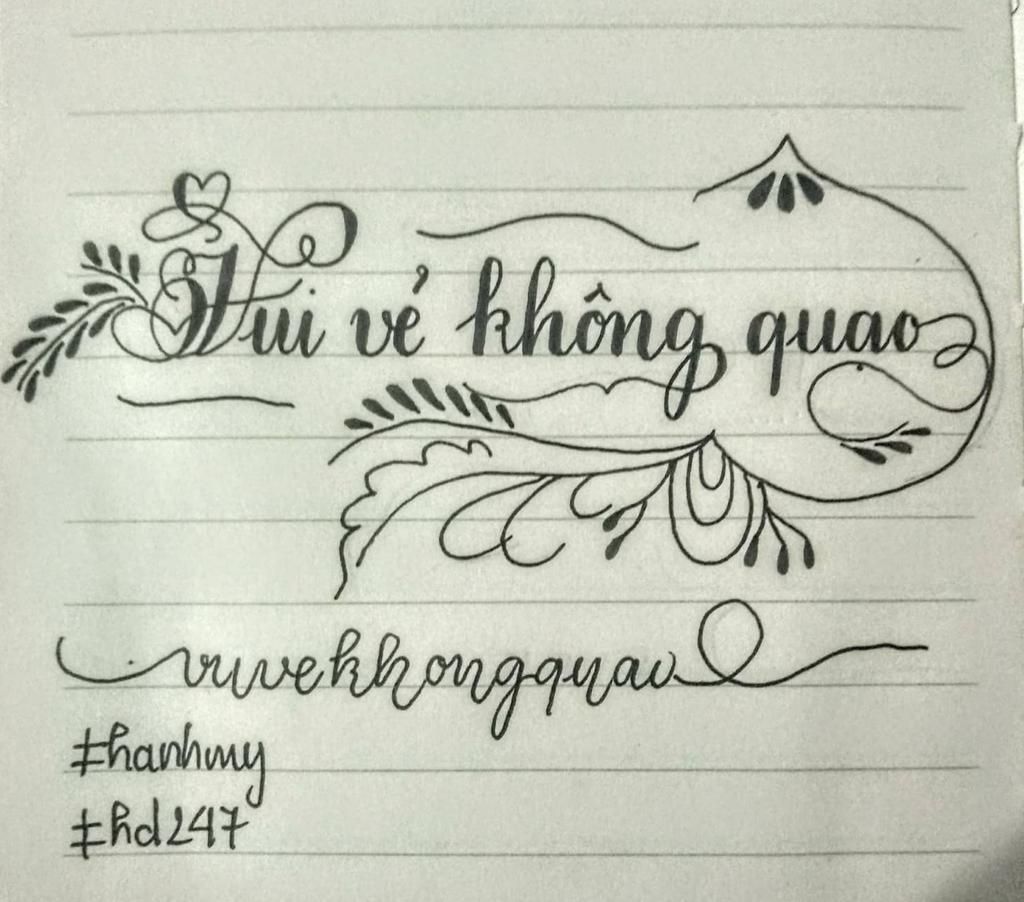 Vui vẻ không quao
vuvekhongquao
#hanhmy
#hd247